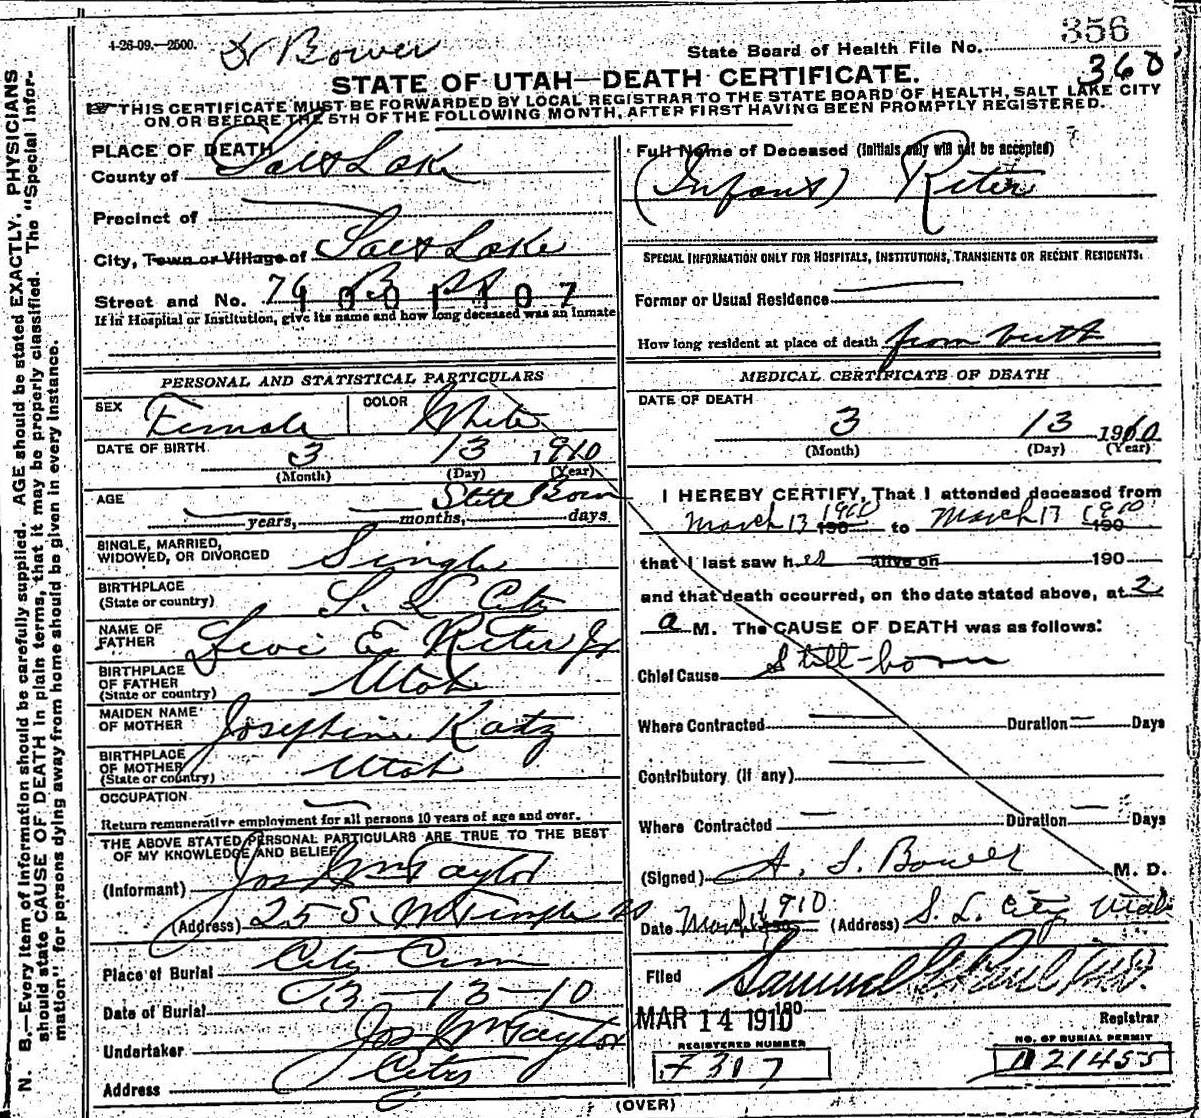 4-26-09.—2500.
Dr Bower
State Board of Health File No. 356
360
STATE OF UTAH—DEATH CERTIFICATE.
THIS CERTIFICATE MUST BE FORWARDED BY LOCAL REGISTRAR TO THE STATE BOARD OF HEALTH, SALT LAKE CITY
ON OR BEFORE THE 5TH OF THE FOLLOWING MONTH, AFTER FIRST HAVING BEEN PROMPTLY REGISTERED.
N. B.—Every item of information should be carefully supplied. AGE should be stated EXACTLY. PHYSICIANS
should state CAUSE OF DEATH in plain terms, that it may be properly classified. The "Special Infor-
mation" for persons dying away from home should be given in every instance.
PLACE OF DEATH
County of Salt Lake
Precinct of —
City, Town or Village of Salt Lake
Street and No. 76 B St
1001107
If in Hospital or Institution, give its name and how long deceased was an Inmate
PERSONAL AND STATISTICAL PARTICULARS
SEX Female COLOR White
DATE OF BIRTH 3 13 1910
(Month) (Day) (Year)
AGE Still Born
— years, — months, days
SINGLE, MARRIED,
WIDOWED, OR DIVORCED Single
BIRTHPLACE
(State or country) S. L. City
NAME OF
FATHER Levi E. Riter Jr
BIRTHPLACE
OF FATHER
(State or country) Utah
MAIDEN NAME
OF MOTHER Josephine Katz
BIRTHPLACE
OF MOTHER
(State or country) Utah
OCCUPATION —
Return remunerative employment for all persons 10 years of age and over.
THE ABOVE STATED PERSONAL PARTICULARS ARE TRUE TO THE BEST
OF MY KNOWLEDGE AND BELIEF
(Informant) Jos Wm Taylor
(Address) 25 S. W Temple St
Place of Burial City Cem
Date of Burial 3-13-10
Undertaker Jos Wm Taylor
Address City
Full Name of Deceased (Initials only will not be accepted)
(Infant) Riter
SPECIAL INFORMATION ONLY FOR HOSPITALS, INSTITUTIONS, TRANSIENTS OR RECENT RESIDENTS.
Former or Usual Residence —
How long resident at place of death from birth
MEDICAL CERTIFICATE OF DEATH
DATE OF DEATH
3 13 1910
(Month) (Day) (Year)
I HEREBY CERTIFY, That I attended deceased from
March 13 1910 190 to March 13 1910 190
that I last saw her alive on 190
and that death occurred, on the date stated above, at 2
a M. The CAUSE OF DEATH was as follows:
Chief Cause Still-born
Where Contracted — Duration — Days
Contributory (If any) —
Where Contracted — Duration — Days
(Signed) A. S. Bower M. D.
Date March 1910 (Address) S. L. City Utah
Filed Samuel G. Paul M.D.
MAR 14 1910 190 Registrar
REGISTERED NUMBER
F 307
NO. OF BURIAL PERMIT
D 21455
(OVER)